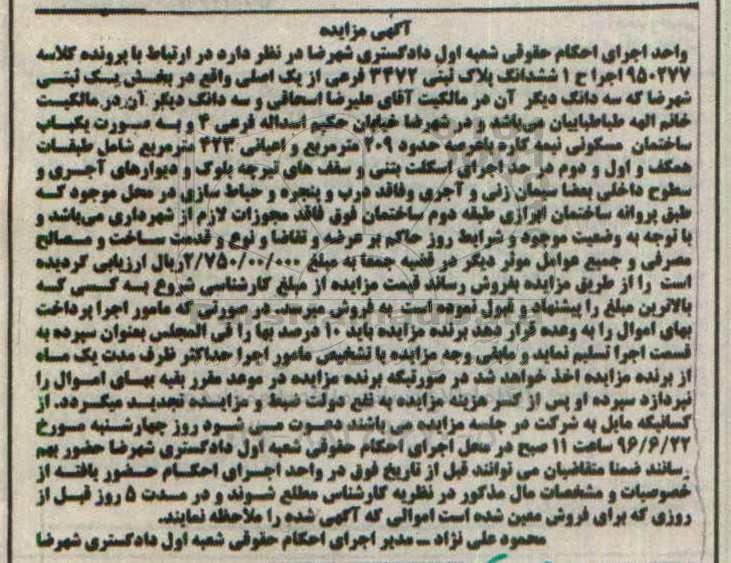 آگهی مزایده
واحد اجرای احکام حقوقی شعبه اول دادگستری شهرضا در نظر دارد در ارتباط با پرونده کلاسه
۹۵۰۲۷۷ اجرا ح ۱ ششدانگ پلاک ثبتی ۳۴۷۲ فرعی از یک اصلی واقع در بخش یک ثبتی
شهرضا که سه دانگ دیگر آن در مالکیت آقای علیرضا اسحاقی و سه دانگ دیگر آن در مالکیت
خانم الهه طباطباییان می‌باشد و در شهرضا خیابان حکیم اسداله فرعی ۴ و به صورت یکباب
ساختمان مسکونی نیمه کاره باعرصه حدود ۲۰۹ مترمربع و اعیانی ۴۲۳ مترمربع شامل طبقات
همکف و اول و دوم در حد اجرای اسکلت بتنی و سقف های تیرچه بلوک و دیوارهای آجری و
سطوح داخلی بعضا سیمان زنی و آجری وفاقد درب و پنجره و حیاط سازی در محل موجود که
طبق پروانه ساختمان ابرازی طبقه دوم ساختمان فوق فاقد مجوزات لازم از شهرداری می‌باشد و
با توجه به وضعیت موجود و شرایط روز حاکم بر عرضه و تقاضا و نوع و قدمت ساخت و مصالح
مصرفی و جمیع عوامل موثر دیگر در قضیه جمعا به مبلغ ۲/۷۵۰/۰۰/۰۰۰ریال ارزیابی گردیده
است را از طریق مزایده بفروش رساند قیمت مزایده از مبلغ کارشناسی شروع به کسی که
بالاترین مبلغ را پیشنهاد و قبول نموده است به فروش میرسد. در صورتی که مامور اجرا پرداخت
بهای اموال را به وعده قرار دهد برنده مزایده باید ۱۰ درصد بها را فی المجلس بعنوان سپرده به
قسمت اجرا تسلیم نماید و مابقی وجه مزایده با تشخیص مامور اجرا حداکثر ظرف مدت یک ماه
از برنده مزایده اخذ خواهد شد در صورتیکه برنده مزایده در موعد مقرر بقیه بهای اموال را
نپردازد سپرده او پس از کسر هزینه مزایده به نفع دولت ضبط و مزایده تجدید میگردد. از
کسانیکه مایل به شرکت در جلسه مزایده می باشند دعوت می شود روز چهارشنبه مورخ
۹۶/۶/۲۲ ساعت ۱۱ صبح در محل اجرای احکام حقوقی شعبه اول دادگستری شهرضا حضور بهم
رسانند ضمنا متقاضیان می توانند قبل از تاریخ فوق در واحد اجرای احکام حضور یافته از
خصوصیات و مشخصات مال مذکور در نظریه کارشناس مطلع شوند و در مدت ۵ روز قبل از
روزی که برای فروش معین شده است اموالی که آگهی شده را ملاحظه نمایند.
محمود علی نژاد ــ مدیر اجرای احکام حقوقی شعبه اول دادگستری شهرضا